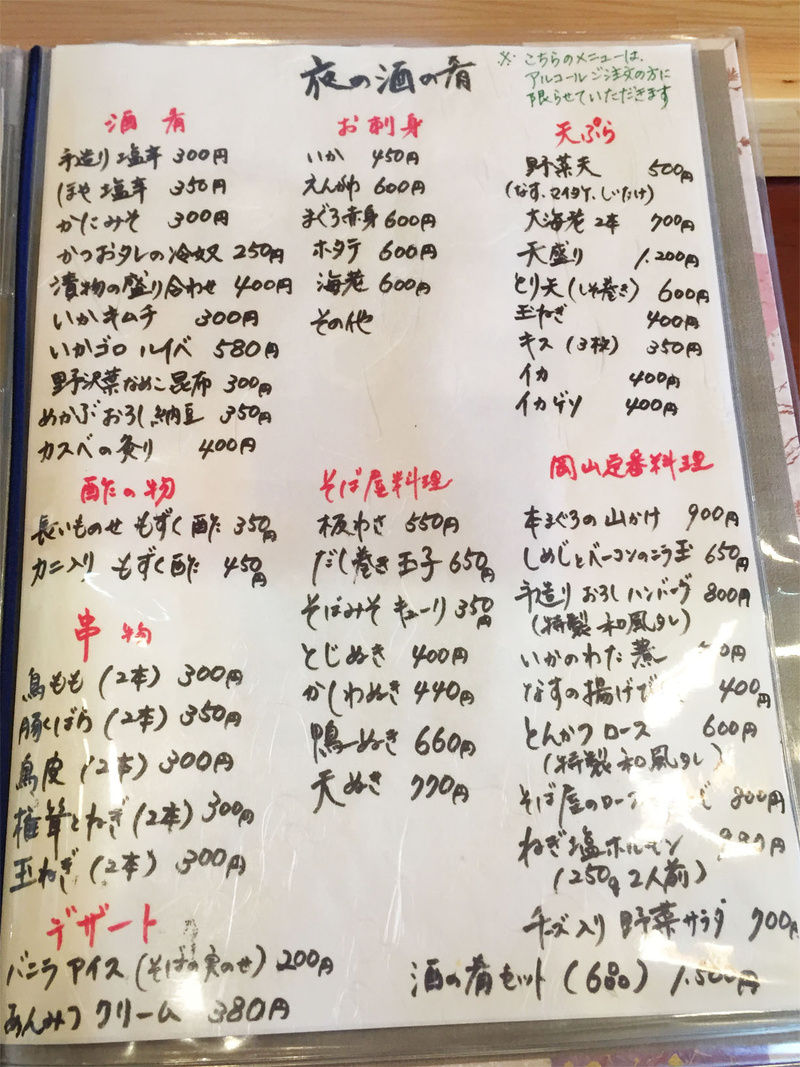 夜の酒の肴
※こちらのメニューは、
アルコールご注文の方に
限らせていただきます
酒肴
手造り塩辛 300円
ほや塩辛 350円
かにみそ 300円
かつおタレの冷奴 250円
漬物の盛り合わせ 400円
いかキムチ 300円
いかゴロ ルイベ 580円
野沢菜なめこ昆布 300円
めかぶおろし納豆 350円
カスベの炙り 400円
酢の物
長いものせ もずく酢 350円
カニ入り もずく酢 450円
串物
鳥もも (2本) 300円
豚くばら (2本) 350円
鳥皮 (2本) 300円
椎茸とねぎ (2本) 300円
玉ねぎ (2本) 300円
デザート
バニラアイス (そばの実のせ) 200円
あんみつ クリーム 380円
お刺身
いか 450円
えんがわ 600円
まぐろ赤身 600円
ホタテ 600円
海老 600円
その他
そば屋料理
板わさ 550円
だし巻き玉子 650円
そばみそ キューリ 350円
とじぬき 400円
かしわぬき 440円
鴨ぬき 660円
天ぬき 770円
天ぷら
野菜天 500円
(なす、マイタケ、しいたけ)
大海老2本 700円
天盛り 1.200円
とり天 (しそ巻き) 600円
玉ねぎ 400円
キス (3枚) 350円
イカ 400円
イカゲソ 400円
岡山定番料理
本まぐろの山かけ 900円
しめじとベーコンのニラ玉 650円
手造り おろしハンバーグ 800円
(特製 和風タレ)
いかのわた煮 0円
なすの揚げ 400円
とんかつ ロース 600円
(特製 和風タレ)
そば屋のロー 800円
ねぎ塩ホルモン
(250g 2人前)
チーズ入り 野菜サラダ 700円
酒の肴セット (6品) 1.500円